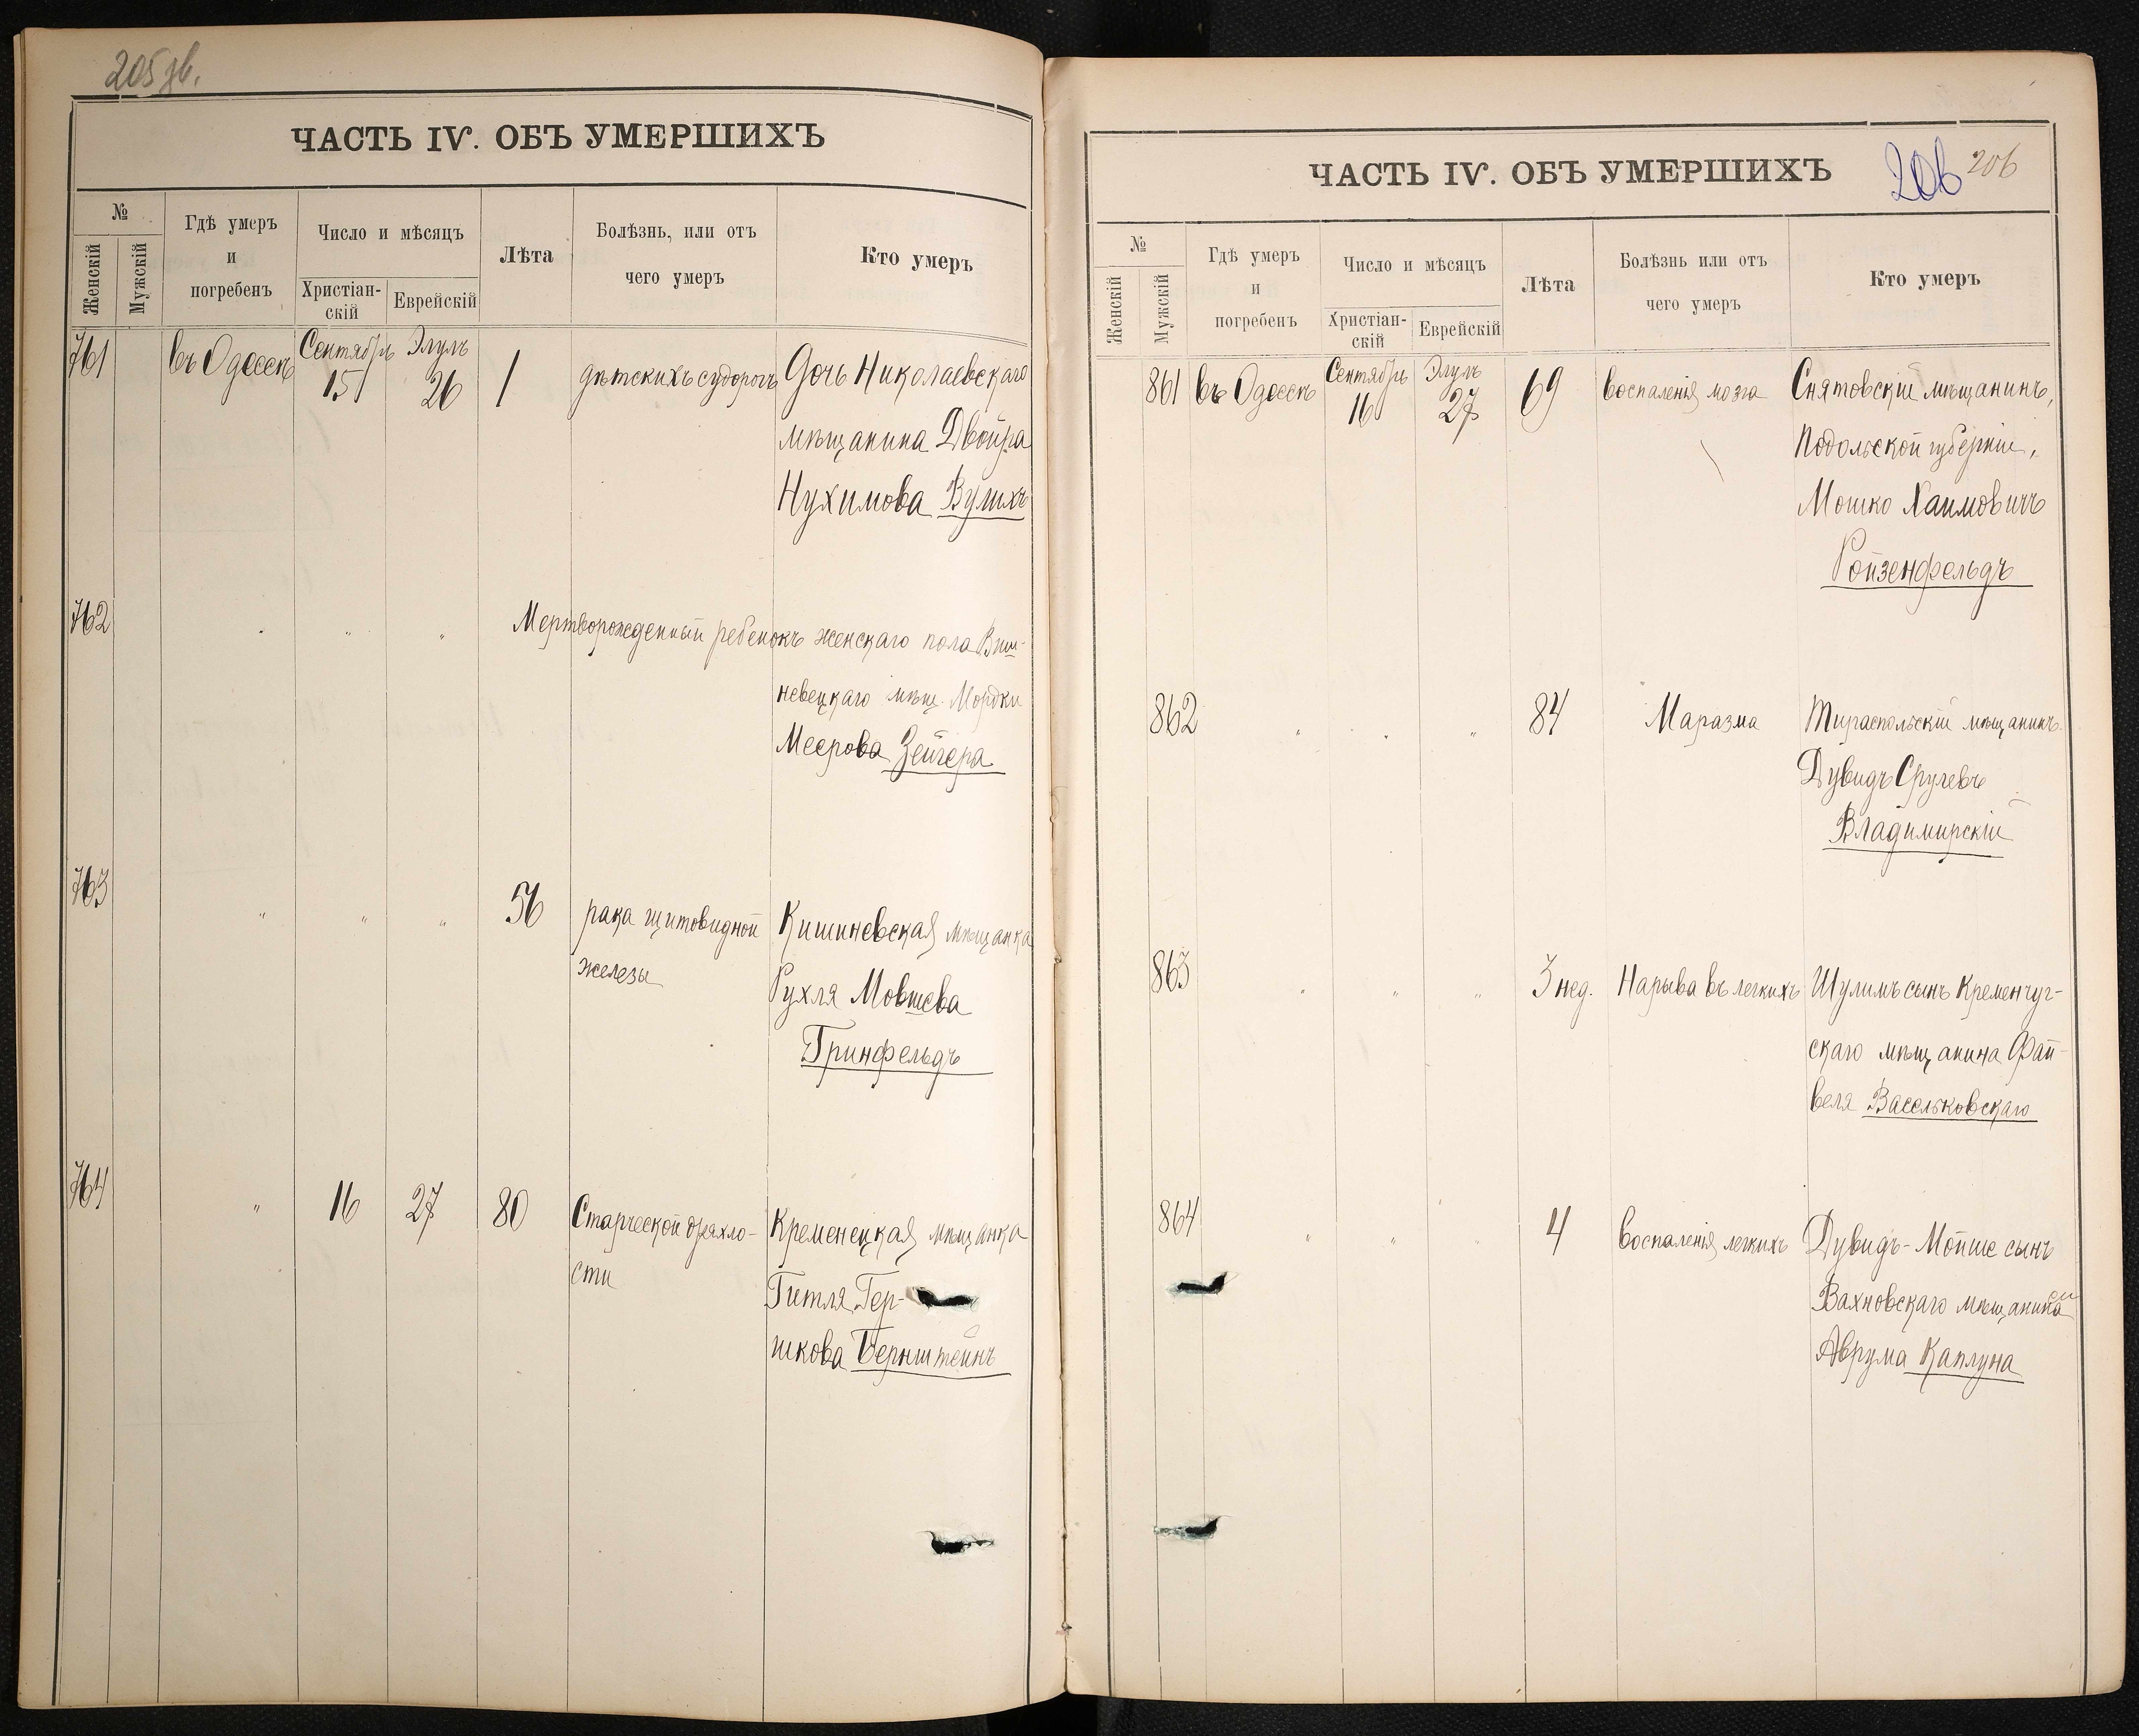 205 зв.
ЧАСТЬ IV. ОБЪ УМЕРШИХЪ
№
Женскій
Мужскій
Гдѣ умеръ
и
погребенъ
Число и мѣсяцъ
Христіан-
скій
Еврейскій
Лѣта
Болѣзнь, или отъ
чего умеръ
Кто умеръ
761 въ Одессѣ Сентябрь 15 Элулъ 26 1 дѣтскихъ судорогъ Дочь Николаевскаго
мѣщанина Двойра
Нухимова Вулихъ
762 " " " Мертворожденный ребенокъ женскаго пола Виш-
невецкаго мѣщ. Мордки
Меерова Зейгера
763 " " " 56 рака щитовидной Кишиневская мѣщанка
железы
Рухля Мовшева
Гринфельдъ
764 " 16 27 80 Старческой дряхло- Кременецкая мѣщанка
сти
Гитля Гер-
шкова Бернштейнъ
ЧАСТЬ IV. ОБЪ УМЕРШИХЪ
206 206
№
Женскій
Мужскій
Гдѣ умеръ
и
погребенъ
Число и мѣсяцъ
Христіан-
скій
Еврейскій
Лѣта
Болѣзнь или отъ
чего умеръ
Кто умеръ
861 въ Одессѣ Сентябрь 16 Элулъ 27 69 воспаленія мозга Снятовскій мѣщанинъ,
Подольской губерніи,
Мошко Хаимовичъ
Ройзенфельдъ
862 " " " 84 Маразма Тираспольскій мѣщанинъ
Дувидъ Срулевъ
Владимирскій
863 " " " 3 нед. Нарыва въ легкихъ Шулимъ сынъ Кременчуг-
скаго мѣщанина Фай-
веля Васельковскаго
864 " " " 4 воспаленія легкихъ Дувидъ-Мойше сынъ
Вахновскаго мѣщанина
Аврума Каплуна